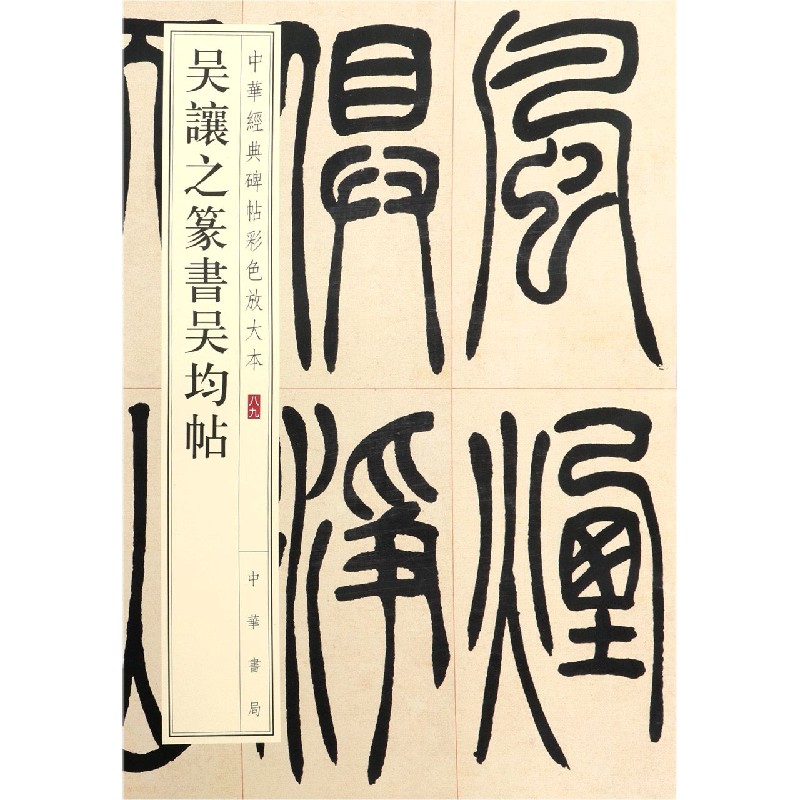 風煙
俱淨
中華經典碑帖彩色放大本
八九
中華書局
吴讓之篆書吴均帖